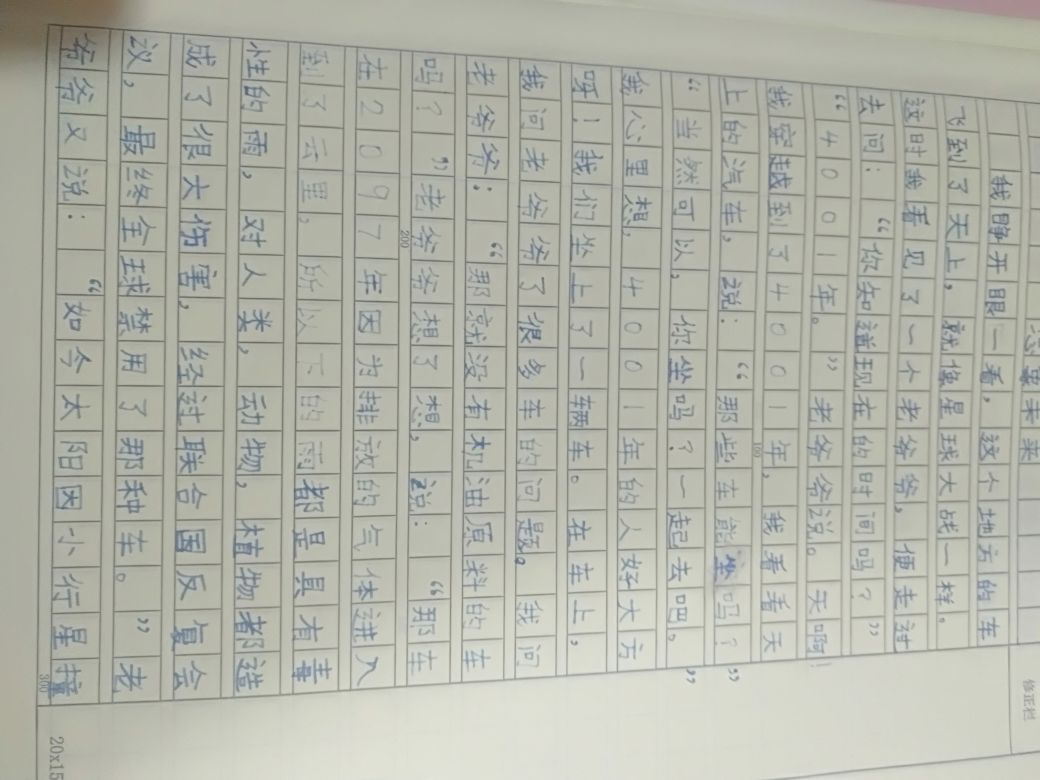 未来
我睁开眼一看，这个地方的车
飞到了天上，就像星球大战一样。
这时我看见了一个老爷爷，便走过
去问：“你知道现在的时间吗？”
“4001年。”老爷爷说。天啊！
我穿越到了4001年，我看看天
上的汽车，说：“那些车能坐吗？”
“当然可以，你坐吗？一起去吧。”
我心里想，4001年的人好大方
呀！我们坐上了一辆车。在车上，
我问老爷爷了很多车的问题。我问
老爷爷：“那就没有机油原料的车
吗？”老爷爷想了想，说：“那车
在2097年因为排放的气体进入
到了云里，所以下的雨都是具有毒
性的雨，对人类，动物，植物都造
成了很大伤害，经过联合国反复会
议，最终全球禁用了那种车。”老
爷爷又说：“如今太阳因小行星撞
100
200
300
修正栏
20x15